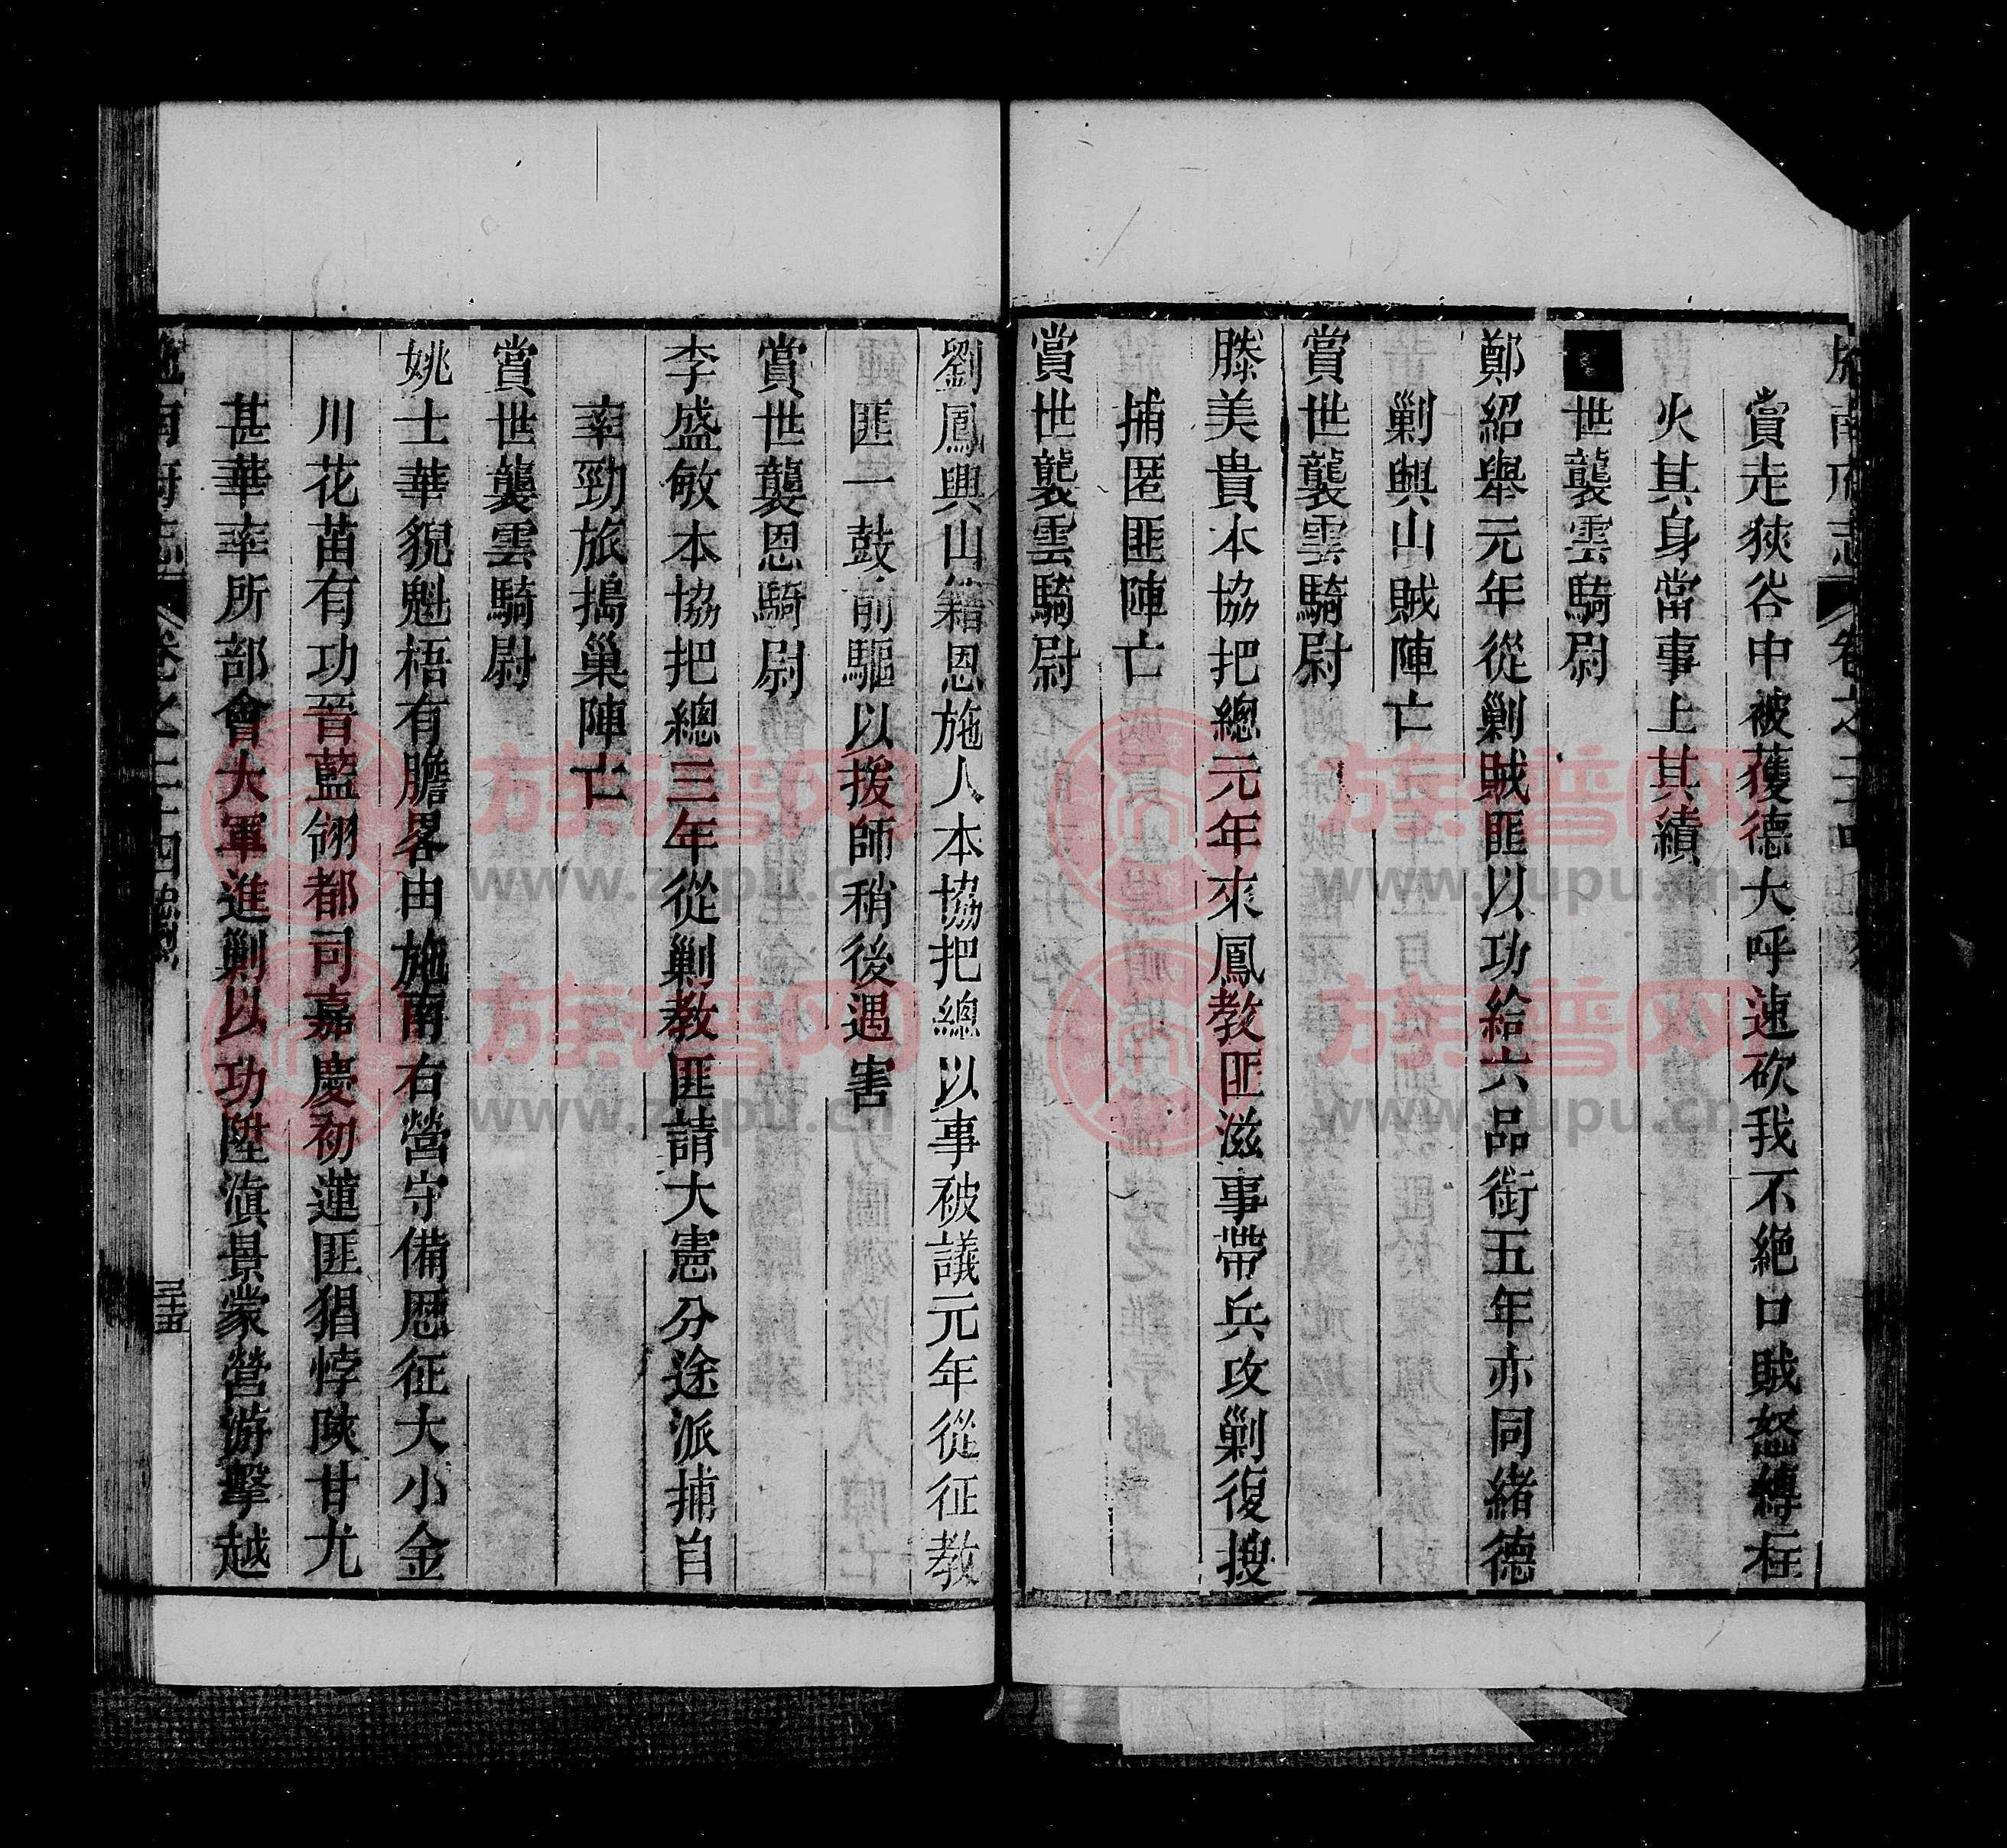 施南府志 卷之二十四
賞走狹谷中被獲德大呼速砍我不絕口賊怒縛在
火其身當事上其績
世襲雲騎尉
鄭紹舉元年從剿賊匪以功給六品銜五年亦同緒德
剿興山賊陣亡
賞世襲雲騎尉
滕美貴本協把總元年來鳳教匪滋事帶兵攻剿復搜
捕匿匪陣亡
賞世襲雲騎尉
劉鳳興山籍恩施人本協把總以事被議元年從征教
匪一鼓前驅以援師稍後遇害
賞世襲恩騎尉
李盛敏本協把總三年從剿教匪請大憲分途派捕自
率勁旅搗巢陣亡
賞世襲雲騎尉
姚士華貌魁梧有膽畧由施南右營守備歷征大小金
川花苗有功晉藍翎都司嘉慶初蓮匪猖悖陝甘尤
甚華率所部會大軍進剿以功陞滇景蒙營游擊越
施南府志 卷之二十四 忠烈 三十五
族谱网
www.zupu.cn
族谱网
www.zupu.cn
族谱网
www.zupu.cn
族谱网
www.zupu.cn